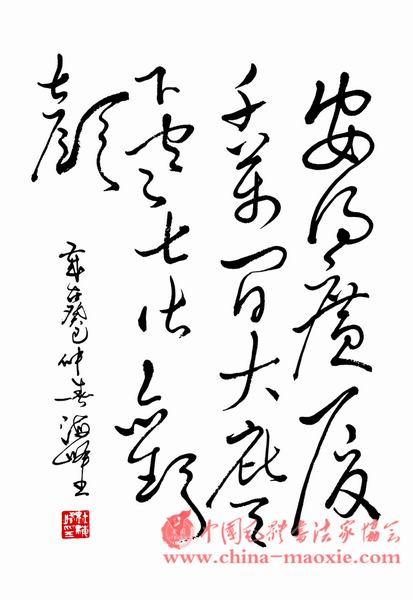 安得廣厦
千萬间大庇天
下寒士俱歡
顏
歲在癸巳仲春海峰
中国毛体书法家协会
www.china-maoxie.com